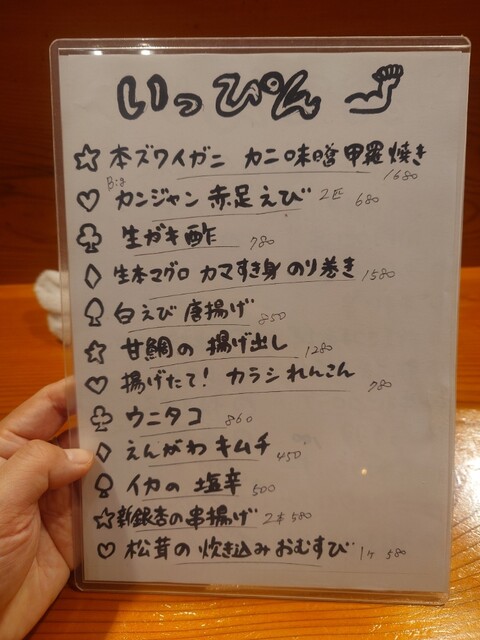 いっぴん
本ズワイガニ カニ味噌甲羅焼き 1680
Big
カンジャン赤足えび 2匹 680
生ガキ酢 780
生本マグロ カマすき身 のり巻き 1580
白えび唐揚げ 850
甘鯛の 揚げ出し 1280
揚げたて! カラシれんこん 780
ウニタコ 860
えんがわキムチ 450
イカの 塩辛 500
新銀杏の串揚げ 2本 580
松茸の 炊き込みおむすび 1ケ 580